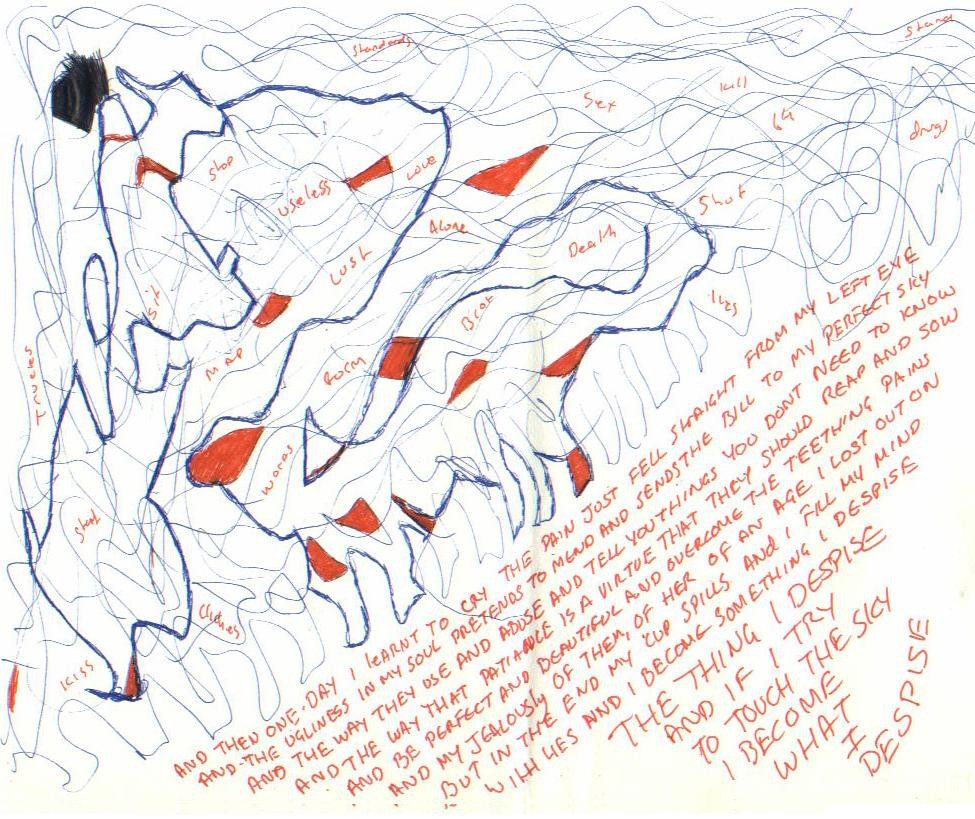 Standards
Sex
kill
drugs
Stop
useless
Love
Shot
Alone
Death
Lust
lies
Scar
MAP
form
words
Shut
Clichés
KISS
AND THEN ONE DAY I LEARNT TO CRY THE PAIN JUST FELL STRAIGHT FROM MY LEFT EYE
AND THE UGLINESS IN MY SOUL PRETENDS TO MEND AND SENDS THE BILL TO MY PERFECT SKY
AND THE WAY THEY USE AND ABUSE AND TELL YOU THINGS YOU DONT NEED TO KNOW
AND THE WAY THAT PATIANCE IS A VIRTUE THAT THEY SHOULD REAP AND SOW
AND BE PERFECT AND BEAUTIFUL AND OVERCOME THE TEETHING PAINS
AND MY JEALOUSLY OF THEM, OF HER OF AN AGE I LOST OUT ON
BUT IN THE END MY CUP SPILLS AND I FILL MY MIND
WITH LIES AND I BECOME SOMETHING I DESPISE
THE THING I DESPISE
AND IF I TRY
TO TOUCH THE SKY
I BECOME
WHAT
I
DESPISE